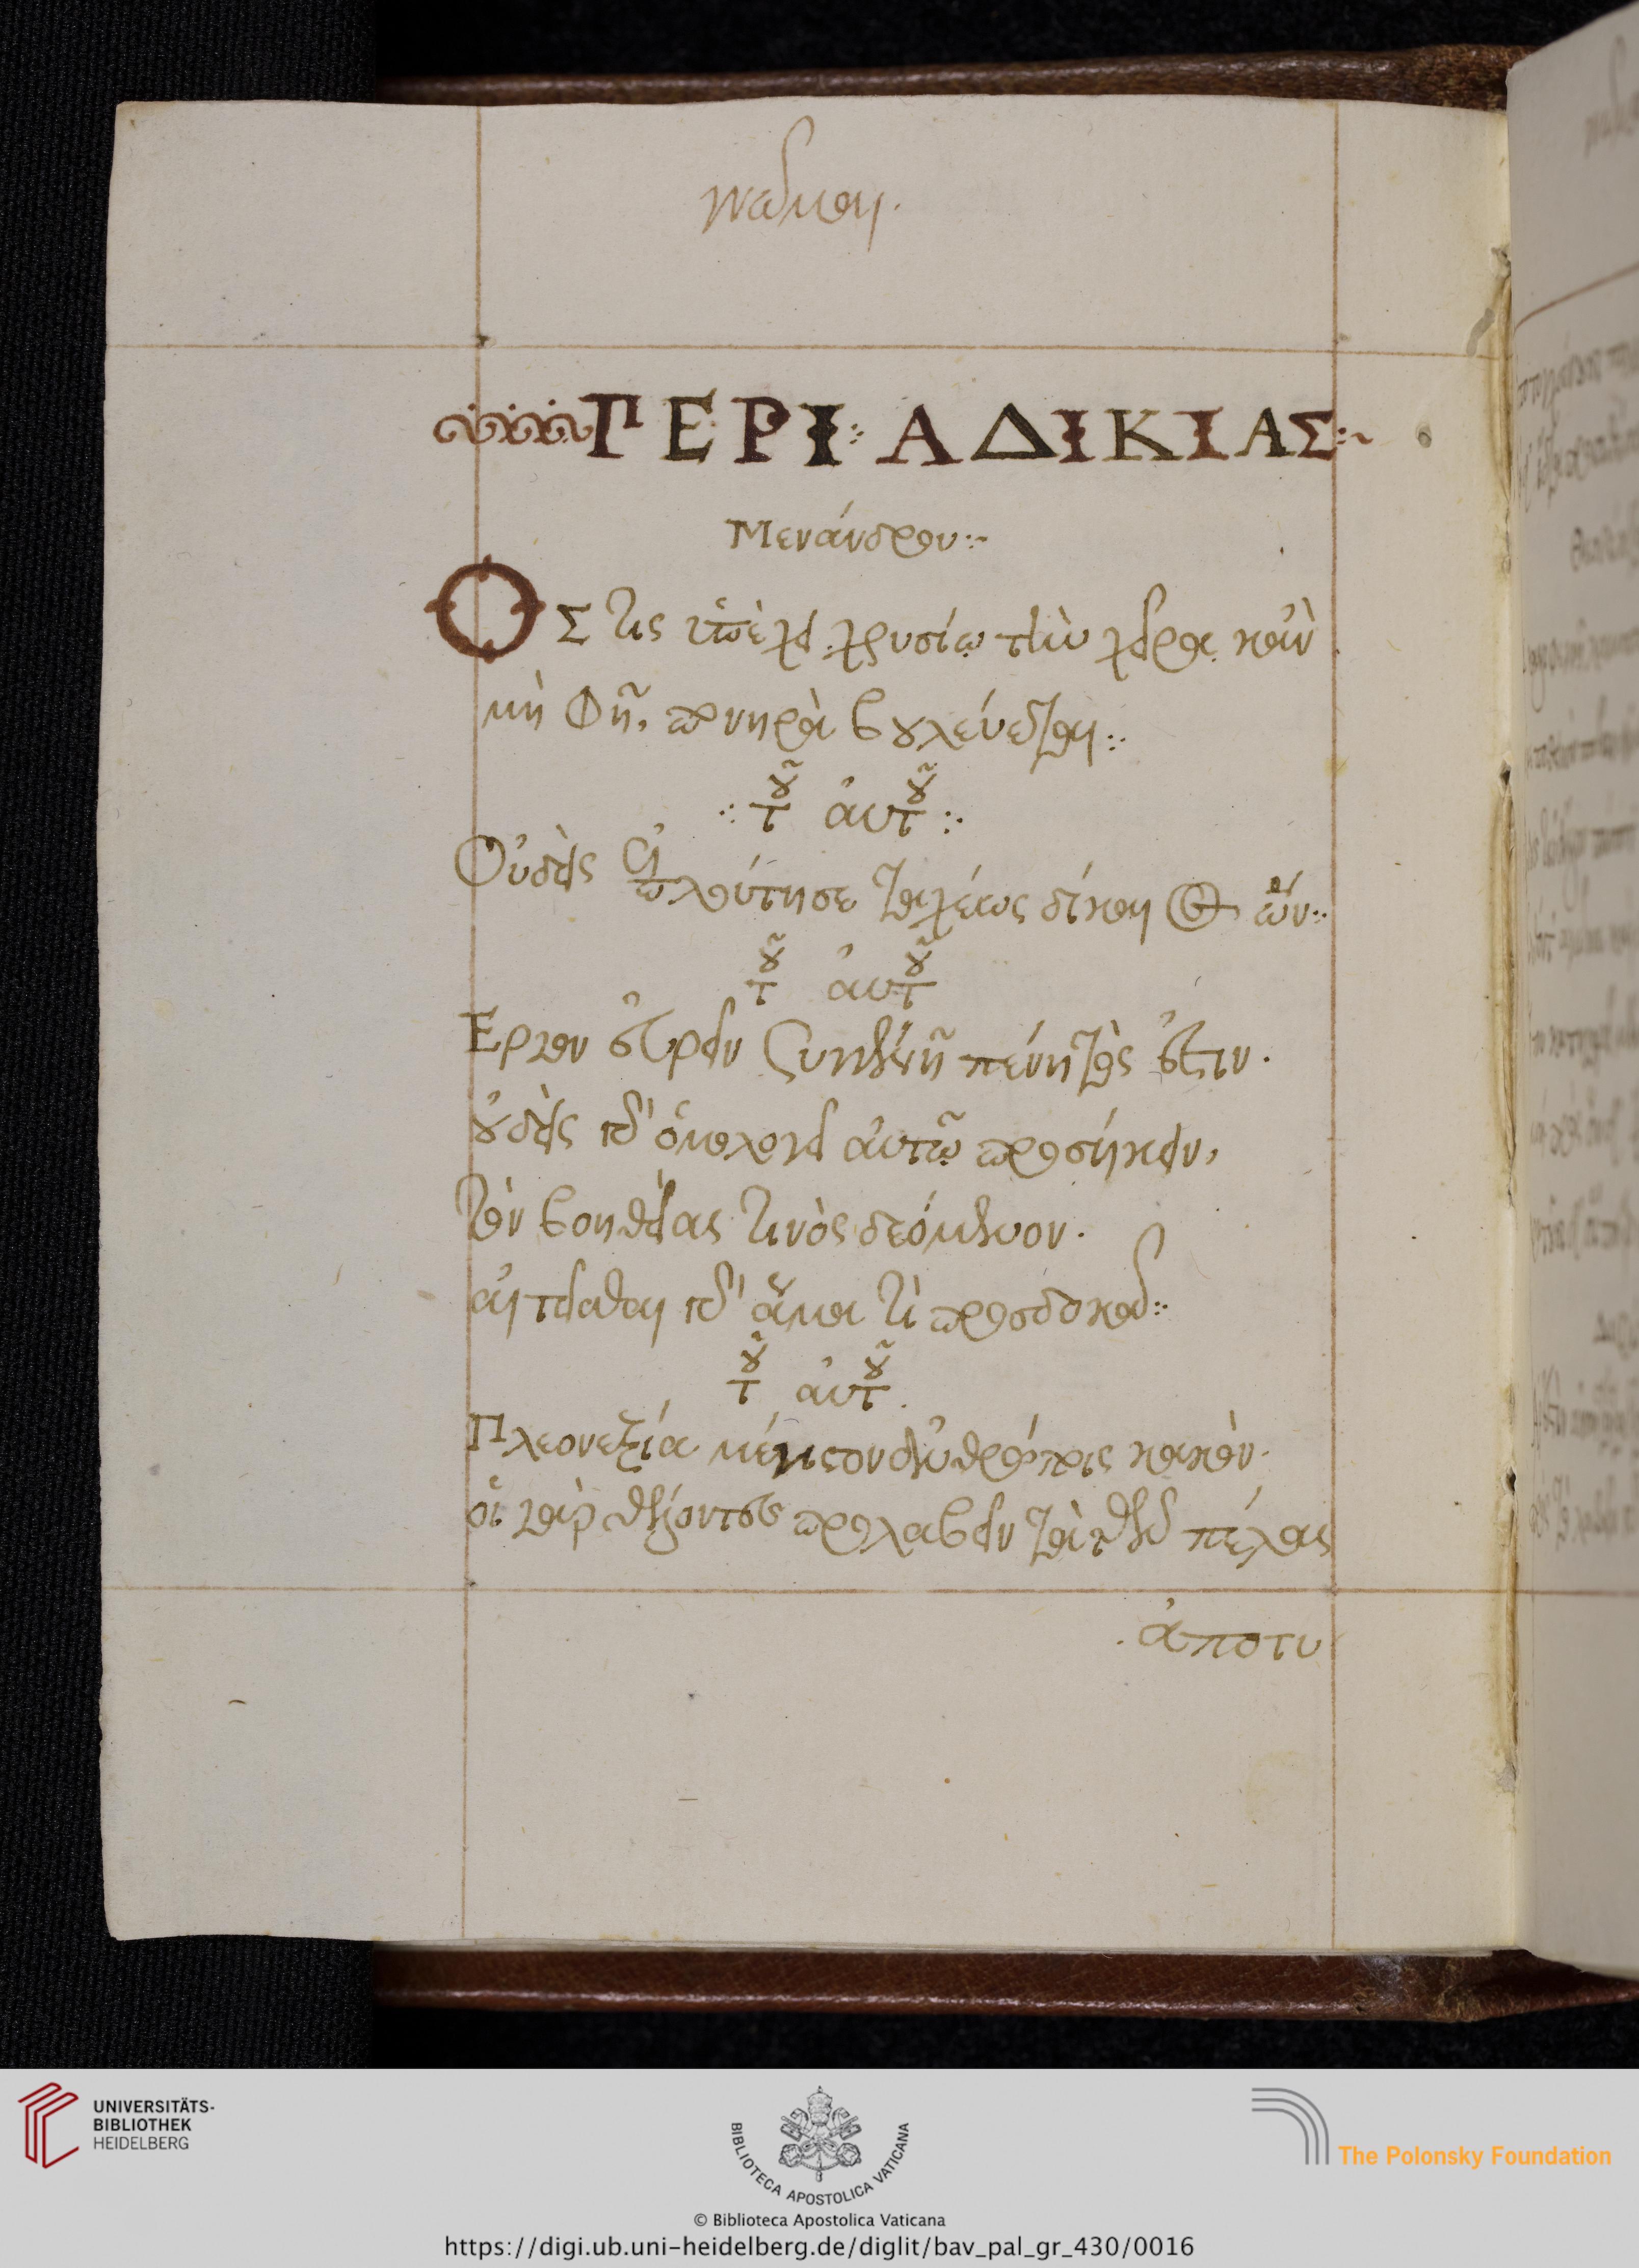 ΠΕΡΙ ΑΔΙΚΙΑΣ
Μενάνδρου
ΟΣτις ὑπέχει χρυσίῳ τὴν χεῖρα κἂν
μὴ φῇ, πονηρὰ βουλεύεται
τοῦ αὐτοῦ
Οὐδεὶς ἐπλούτησε ταχέως δίκαιος ὤν
τοῦ αὐτοῦ
Εργον εὑρεῖν συγγενῆ πένητός ἐστιν.
οὐδεὶς γὰρ ὁμολογεῖ αὐτῷ προσήκειν,
τὸν βοηθείας τινὸς δεόμενον.
αἰτεῖσθαι γὰρ ἅμα τὶ προσδοκεῖ
τοῦ αὐτοῦ
Πλεονεξία μέγιστον ἀνθρώποις κακόν.
οἱ γὰρ θέλοντες προλαβεῖν τὰ πέλας
ἀποτυ
UNIVERSITÄTS-
BIBLIOTHEK
HEIDELBERG
BIBLIOTECA APOSTOLICA VATICANA
The Polonsky Foundation
© Biblioteca Apostolica Vaticana
https://digi.ub.uni-heidelberg.de/diglit/bav_pal_gr_430/0016